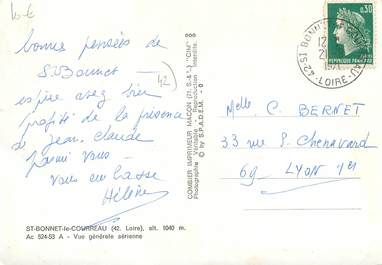 bonnes pensées de
St Bonnet (42)
espère avez bien
profité de la présence
de Jean. Claude
parmi vous -
vous embrasse
Hélène
ST-BONNET-le-COURREAU (42. Loire), alt. 1040 m.
Ac 524-53 A - Vue générale aérienne
COMBIER IMPRIMEUR MACON (71. S.-&-L.) "CIM"
Photographie Véritable - Reproduction Interdite.
© by S.P.A.D.E.M. - 0
0,30
REPUBLIQUE FRANCAISE
42-ST BONNET
LOIRE
Melle C. BERNET
33 rue P. Chenavard
69 - LYON 1er